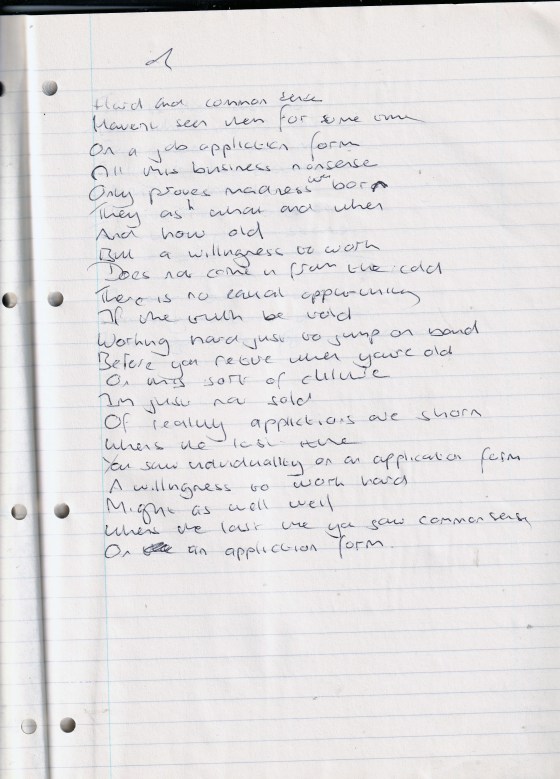 Hard and common sense
Havent seen them for some time
On a job application form
All this business nonsense
Only proves madness was born
They ask what and when
And how old
But a willingness to work
Does not come in from the cold
There is no equal opportunity
If the truth be told
Working hard just to jump on board
Before you retire when youre old
On this sort of culture
Im just not sold
Of reality applications are shorn
Whens the last time
You saw individuality on an application form
A willingness to work hard
Might as well
Whens the last time you saw common sense
On an application form.